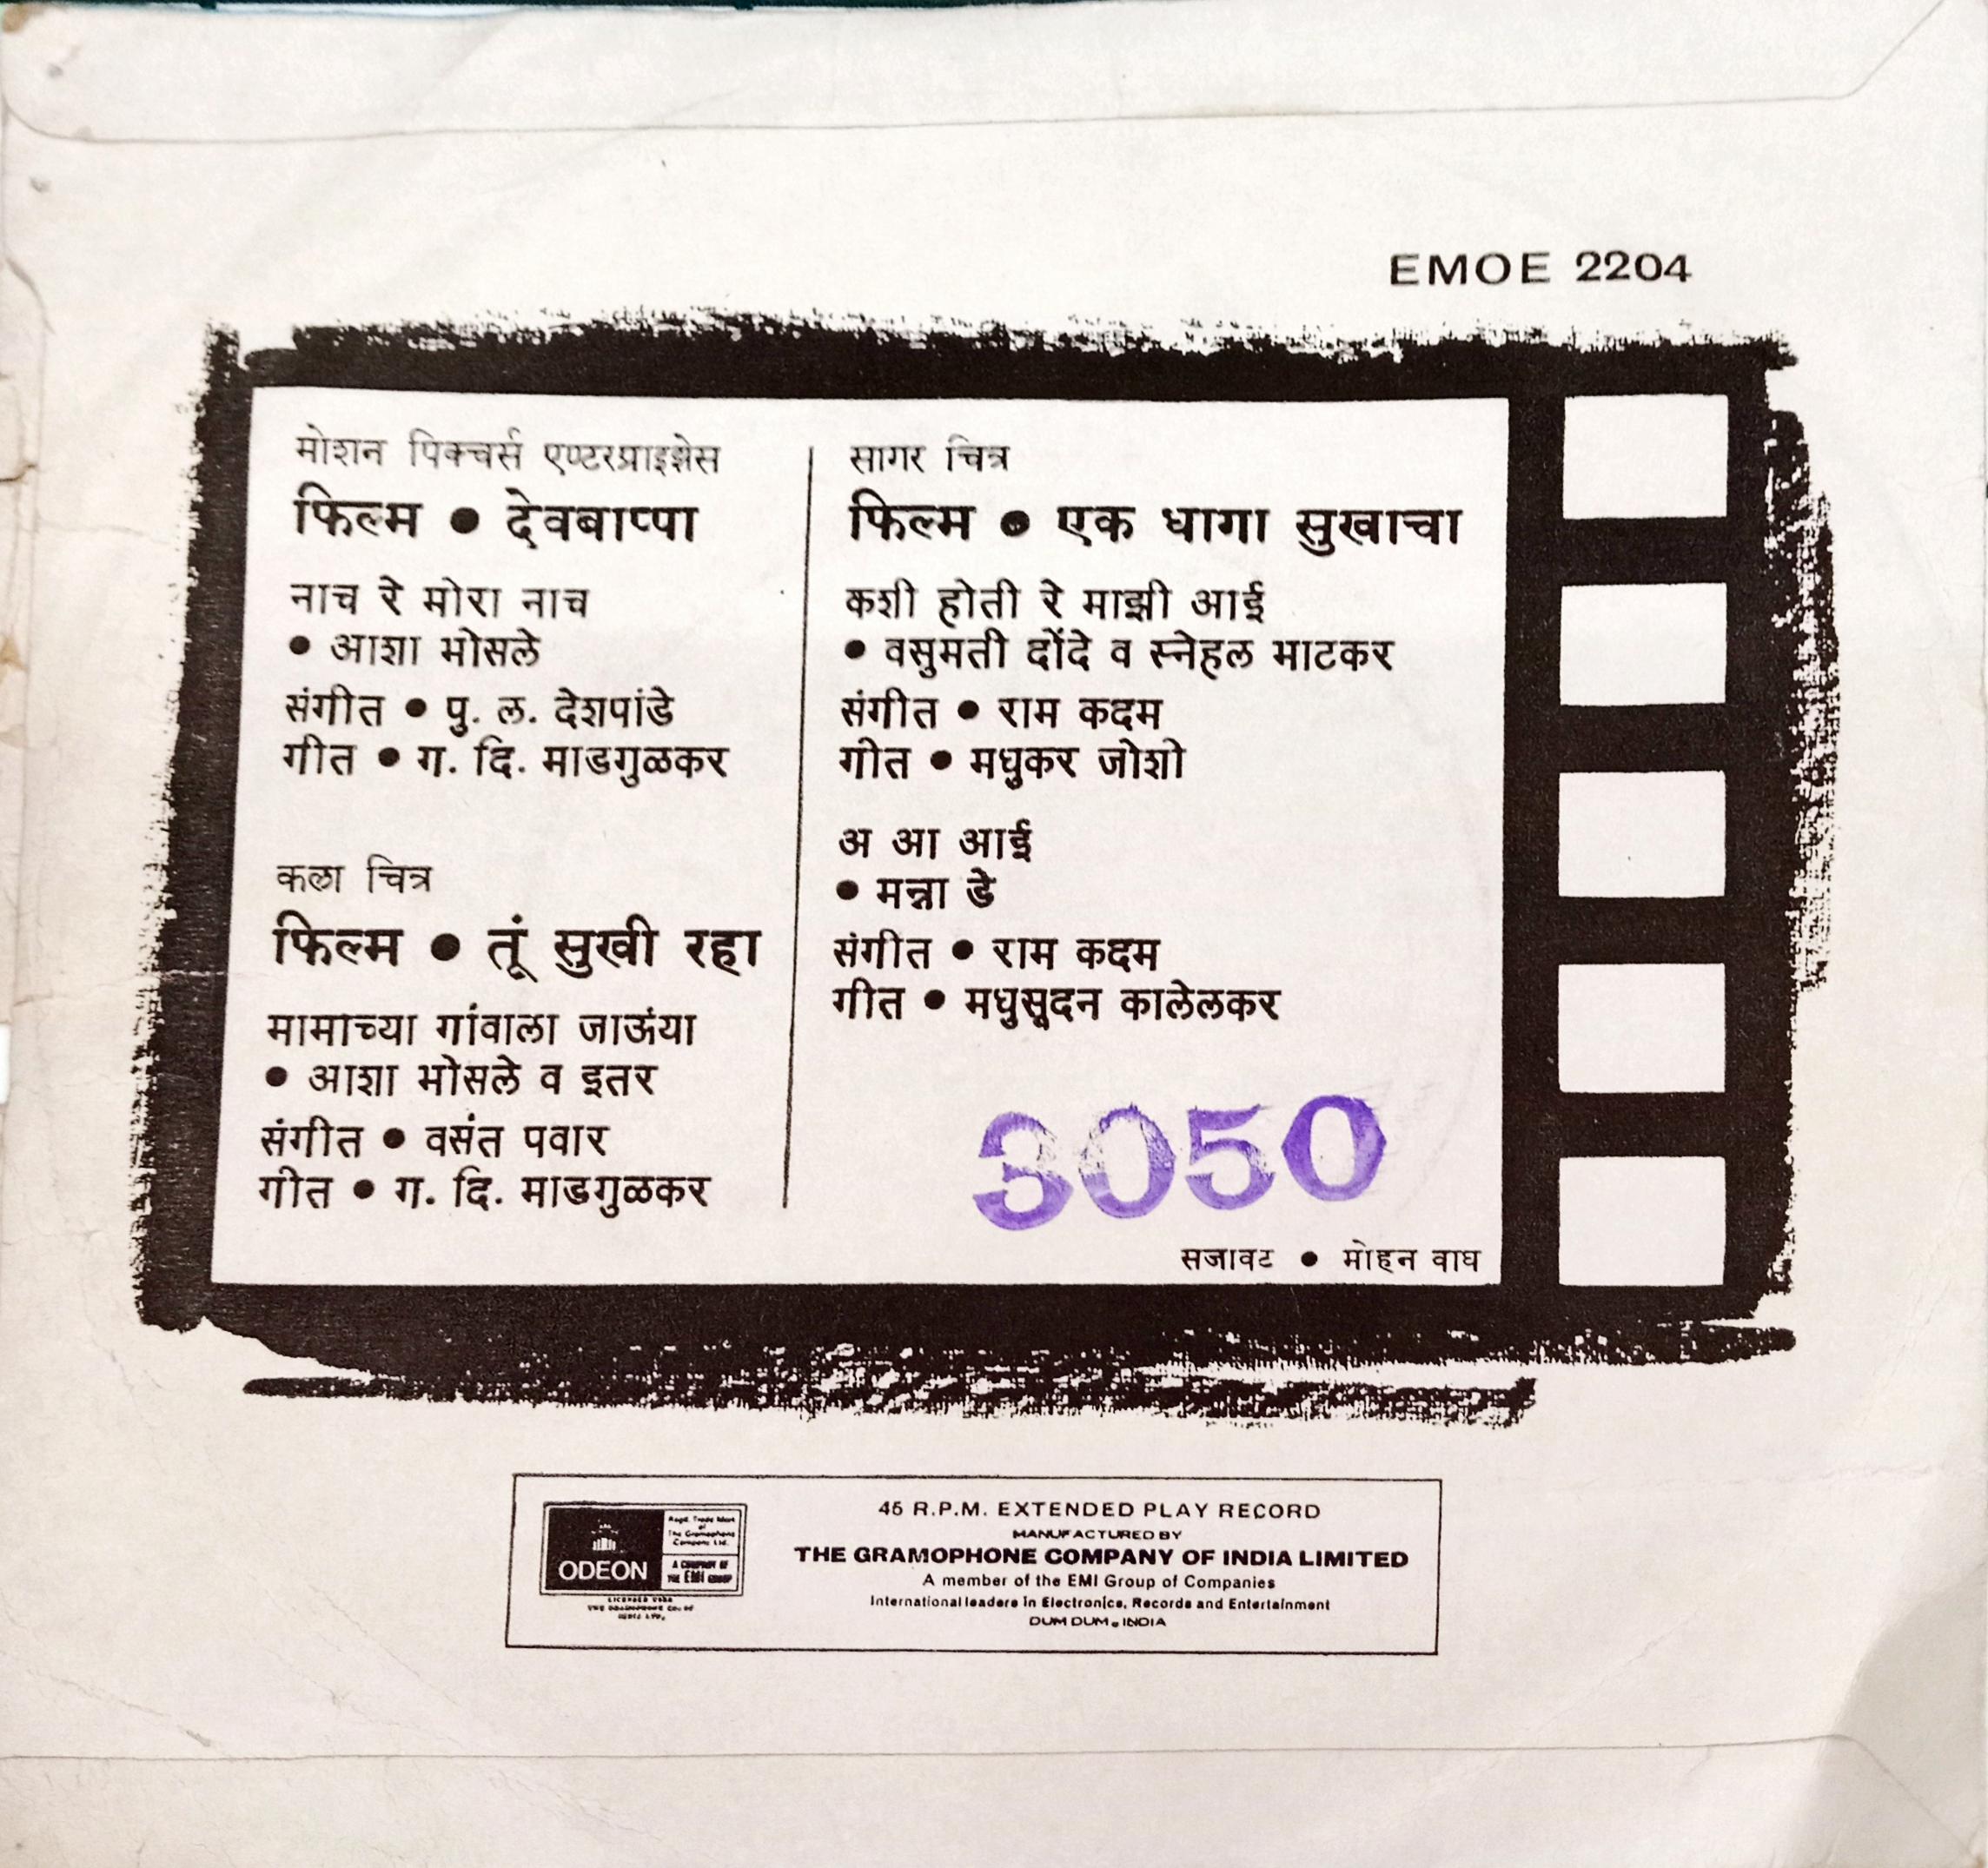 EMOE 2204
मोशन पिक्चर्स एण्टरप्राइझेस
फिल्म • देवबाप्पा
नाच रे मोरा नाच
• आशा भोसले
संगीत • पु. ल. देशपांडे
गीत • ग. दि. माडगुळकर
कला चित्र
फिल्म • तूं सुखी रहा
मामाच्या गांवाला जाऊंया
• आशा भोसले व इतर
संगीत • वसंत पवार
गीत • ग. दि. माडगुळकर
सागर चित्र
फिल्म • एक धागा सुखाचा
कशी होती रे माझी आई
• वसुमती दोंदे व स्नेहल भाटकर
संगीत • राम कदम
गीत • मधुकर जोशी
अ आ आई
• मन्ना डे
संगीत • राम कदम
गीत • मधुसूदन कालेलकर
3050
सजावट • मोहन वाघ
ODEON
Regd. Trade Mark
of
The Gramophone
Company Ltd.
A COMPANY OF
THE EMI GROUP
45 R.P.M. EXTENDED PLAY RECORD
MANUFACTURED BY
THE GRAMOPHONE COMPANY OF INDIA LIMITED
A member of the EMI Group of Companies
International leaders in Electronics, Records and Entertainment
DUM DUM. INDIA